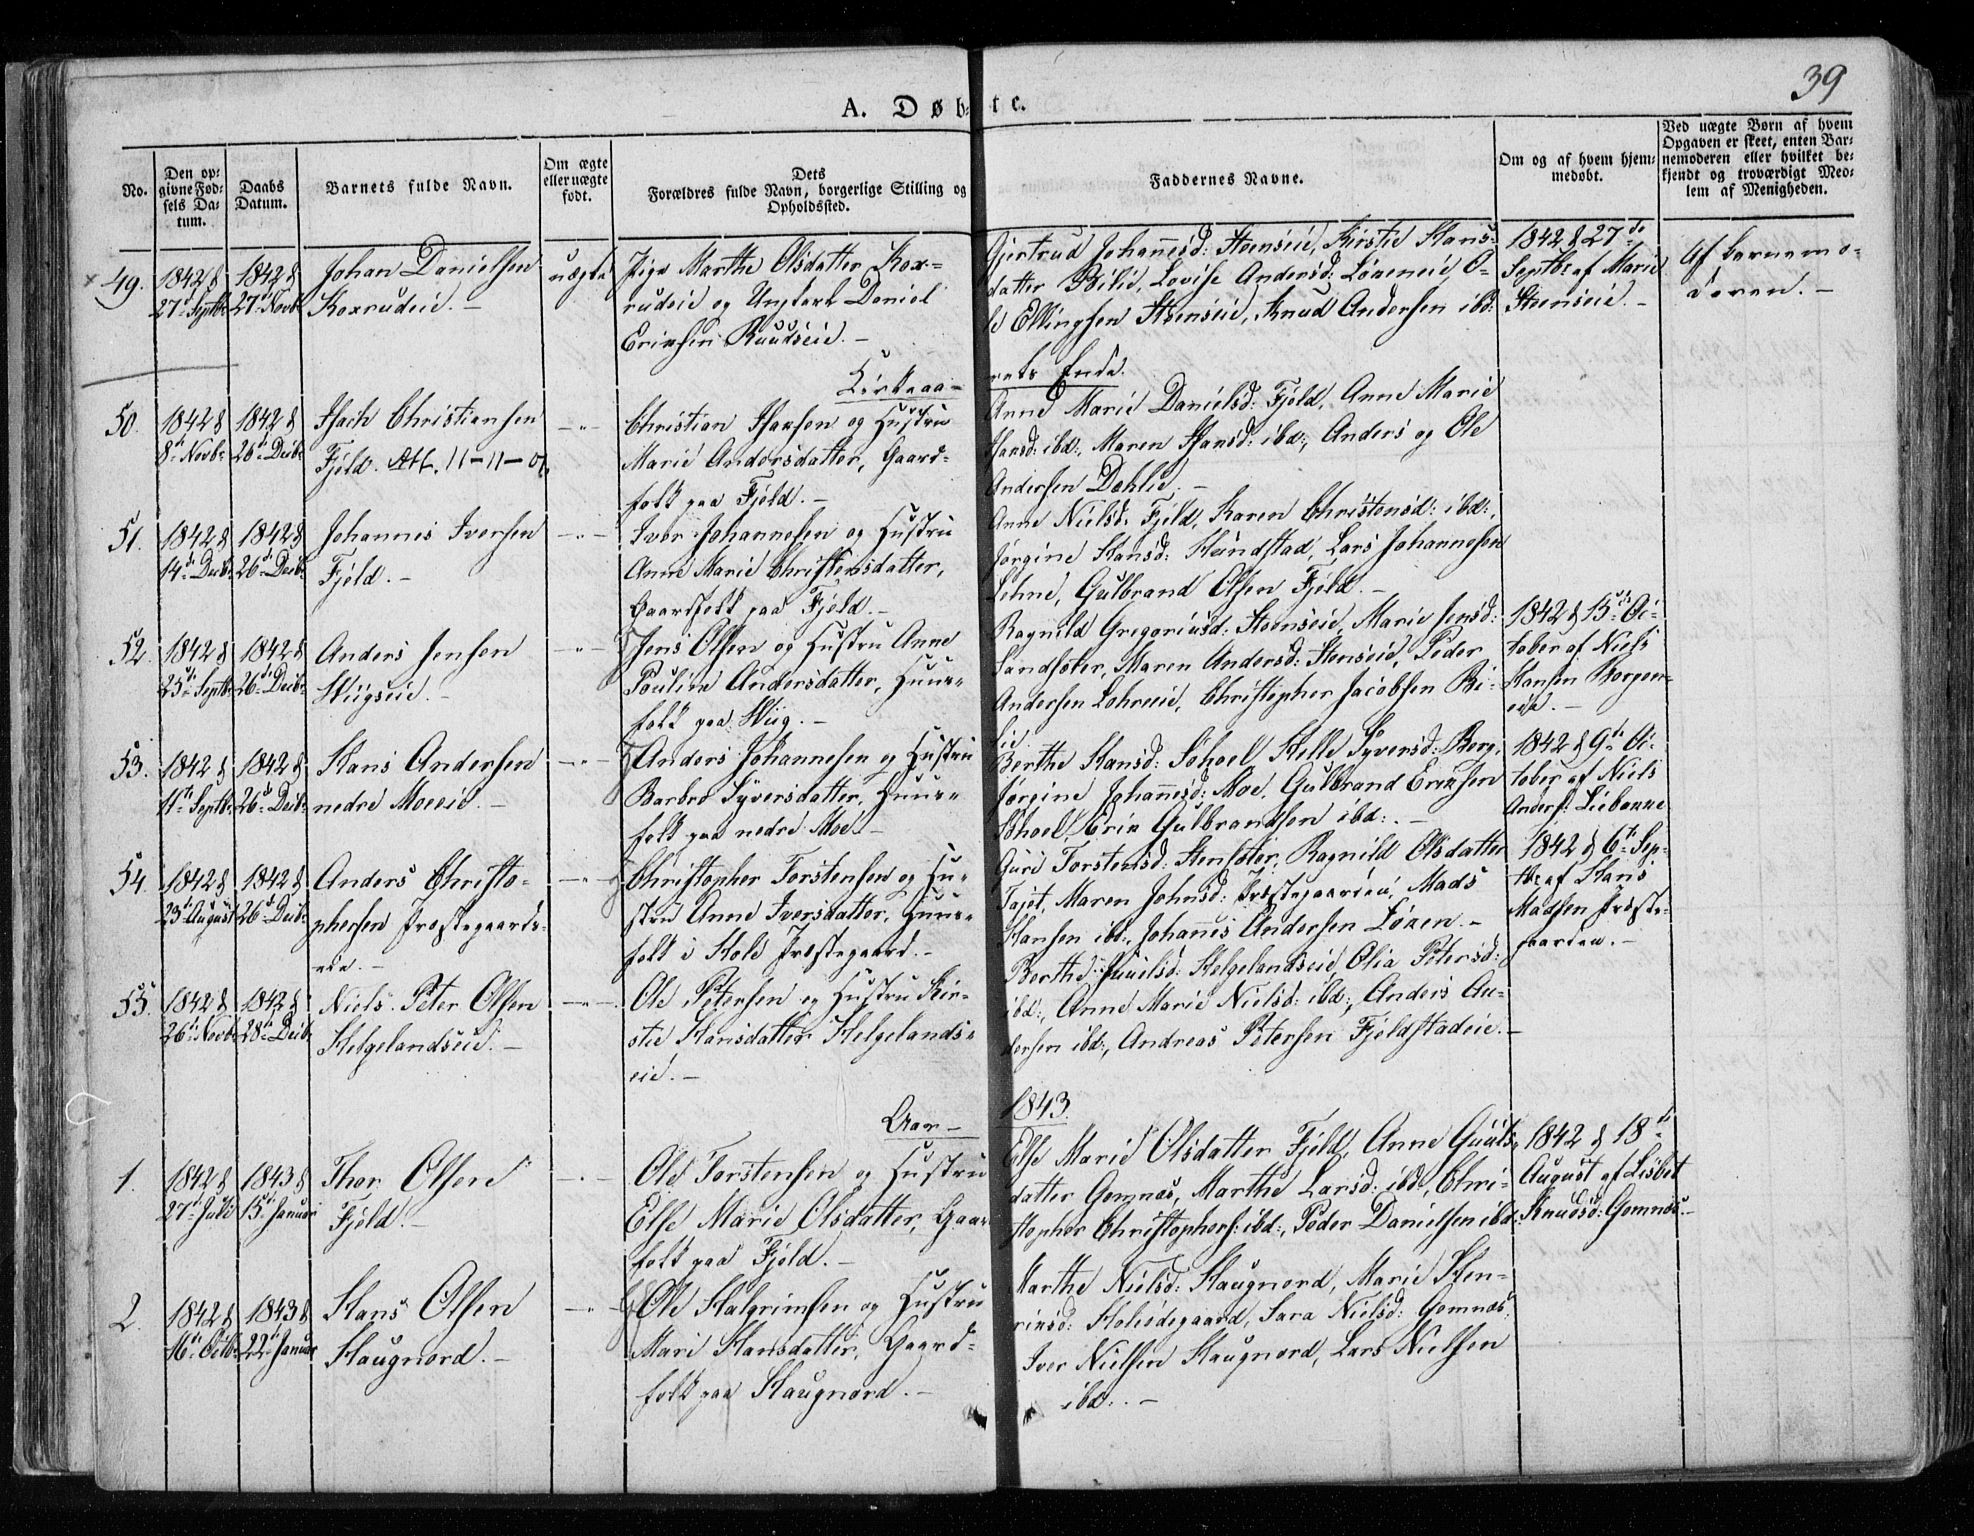 39
A. Døbte.
No.
Den op-
givne Fød-
sels Da-
tum.
Daabs
Datum.
Barnets fulde Navn.
Om ægte
eller uægte
født.
Dets
Forældres fulde Navn, borgerlige Stilling og
Opholdssted.
Faddernes Navne.
Om og af hvem hjem-
medøbt.
Ved uægte Børn af hvem
Opgaven er skeet, enten Bar-
nemoderen eller hvilket be-
kjendt og troværdigt Med-
lem af Menigheden.
49.
1842 d
27de Septbr
1842 d
27de Novbr
Johan Danielsen
Koxrudeie. –
uægte
Pige Marthe Olsdatter Kox-
rudeie og Ungkarl Daniel
Eriksen Ruudseie. –
Gjertrud Johannesd: Steenseie, Kirstie Hans-
datter Bilie, Lovise Andersd: Løkeneie, O-
le Ellingsen Steenseie, Knud Andersen ibd:
1842 d 27de
Septbr af Marie
Steenseie. –
Af Barnemo-
deren. –
Kirkeaa-
rets Ende.
50.
1842 d
8de Novbr
1842 d
26de Decbr
Isach Christiansen
Fjeld. Att. 11-11-01.
– " –
Christian Isaksen og Hustru
Marie Andersdatter, Gaard-
folk paa Fjeld. –
Anne Marie Danielsd: Fjeld, Anne Marie
Hansd: ibd:, Maren Hansd: ibd:, Anders og Ole
Andersen Dehlie. –
51.
1842 d
14de Decbr
1842 d
26de Decbr
Johannes Iversen
Fjeld. –
– " –
Iver Johannesen og Hustru
Anne Marie Christensdatter,
Gaardfolk paa Fjeld. –
Anne Nielsd: Fjeld, Karen Christensd: ibd:,
Jørgine Hansd: Hundstad, Lars Johannesen
Lehne, Gulbrand Olsen Fjeld. –
52.
1842 d
25de Septbr
1842 d
26de Decbr
Anders Jensen
Wiigseie. –
– " –
Jens Olsen og Hustru Anne
Pauline Andersdatter, Huus-
folk paa Wiig. –
Ragnild Gregoriusd: Steenseie, Marie Jensd:
Sandsæter, Maren Andersd: Stenseie, Peder
Andersen Lehneeie, Christopher Jacobsen Bi-
lie.
1842 d 15de Oc-
tober af Niels
Hansen Borgen-
eie. –
53.
1842 d
11te Septbr
1842 d
26de Decbr
Hans Andersen
nedre Moeeie. –
– " –
Anders Johannesen og Hustru
Barbro Syversdatter, Huus-
folk paa nedre Moe –
Berthe Hansd: Søhoel, Helle Syversd: Berg,
Jørgine Johannesd: Moe, Gulbrand Eriksen
Søhoel, Erik Gulbrandsen ibd:. –
1842 d 9de Oc-
tober af Niels
Anders: Liebakke
54.
1842 d
23de August
1842 d
26de Decbr
Anders Christo-
phersen Præstegaards-
eie. –
– " –
Christopher Torstensen og Hu-
stru Anne Iversdatter, Huus-
folk i Hole Præstegaard. –
Guri Torstensd: Stensæter, Ragnild Olsdatter
Fajet, Maren Johnsd: Præstegaarden, Mads
Hansen ibd:, Johannes Andersen Løken. –
1842 d 6te Sep-
tbr af Hans
Madsen Præste-
gaarden. –
55.
1842 d
26de Novbr
1842 d
28de Decbr
Niels Peter Olsen
Helgelandseie. –
– " –
Ole Petersen og Hustru Kir-
stie Hansdatter Helgelands-
eie. –
Berthe Juuelsd: Helgelandseie, Olia Petersd:
ibd:, Anne Marie Nielsd: ibd:, Anders An-
dersen ibd:, Andreas Petersen Fjeldstadeie. –
Aar –
1843.
1.
1842 d
27de Juli
1843 d
15de Januar
Thor Olsen
Fjeld. –
– " –
Ole Torstensen og Hustru
Else Marie Olsdatter, Gaard-
folk paa Fjeld. –
Else Marie Olsdatter Fjeld, Anne Guuls-
datter Gomnæs, Marthe Larsd: ibd:, Chri-
stopher Christophers: ibd:, Peder Danielsen ibd:
1842 d 18de
August af Lisbet
Knudsd: Gomnæs. –
2.
1842 d
16de Octbr
1843 d
22de Januar
Hans Olsen
Haugnord. –
– " –
Ole Halgrimsen og Hustru
Mari Hansdatter, Gaard-
folk paa Haugnord. –
Marthe Nielsd: Haugnord, Marie Hen-
riksd: Sara Nielsd: Gomnæs,
Iver Nielsen Haugnord, Lars Nielsen
ibd:. –